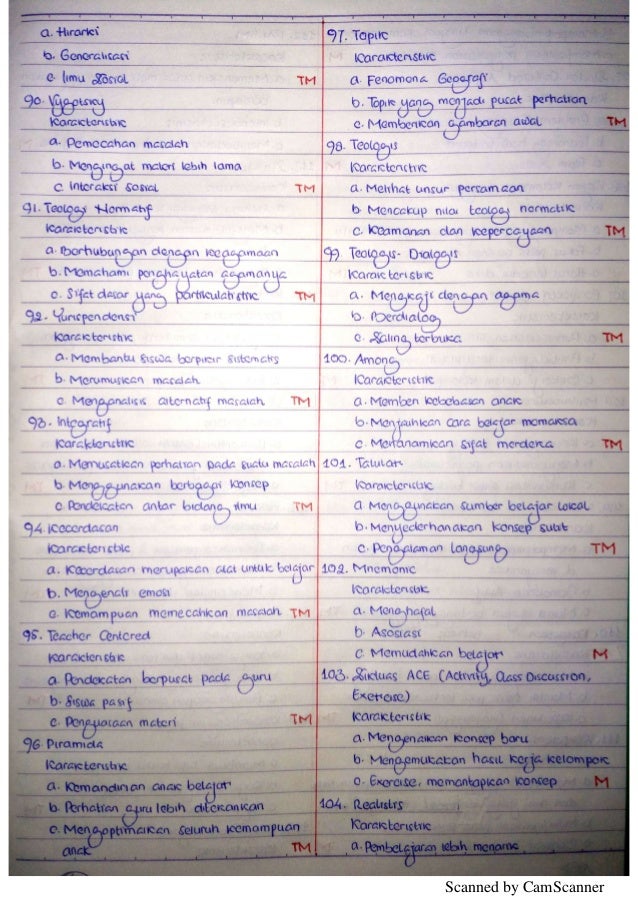 a. Hirarki
b. Generalisasi
c. Ilmu Sosial TM
90. Vygotsky
Karakteristik
a. Pemecahan masalah
b. Mengingat materi lebih lama
c. Interaksi sosial TM
91. Teologi Normatif
Karakteristik
a. Berhubungan dengan keagamaan
b. Memahami penghayatan agamanya
c. Sifat dasar yang partikularistik TM
92. Yurispendensi
Karakteristik
a. Membantu siswa berpikir sistematis
b. Merumuskan masalah
c. Menganalisis alternatif masalah TM
93. Integratif
Karakteristik
a. Memusatkan perhatian pada suatu masalah
b. Menggunakan berbagai konsep
c. Pendekatan antar bidang ilmu TM
94. Kecerdasan
Karakteristik
a. Kecerdasan merupakan alat untuk belajar
b. Mengenali emosi
c. Kemampuan memecahkan masalah TM
95. Teacher Centered
Karakteristik
a. Pendekatan berpusat pada guru
b. Siswa pasif
c. Penguasaan materi TM
96. Piramida
Karakteristik
a. Kemandirian anak belajar
b. Perhatian guru lebih ditekankan
c. Mengoptimalkan seluruh kemampuan
anak TM
97. Topik
Karakteristik
a. Fenomena Geografi
b. Topik yang menjadi pusat perhatian
c. Memberikan gambaran awal TM
98. Teologis
Karakteristik
a. Melihat unsur persamaan
b. Mencakup nilai teologi normatik
c. Keamanan dan kepercayaan TM
99. Teologis-Dialogis
Karakteristik
a. Mengkaji dengan agama
b. Berdialog
c. Saling terbuka TM
100. Among
Karakteristik
a. Memberi kebebasan anak
b. Menjauhkan cara belajar memaksa
c. Menanamkan sifat merdeka TM
101. Tatulan
Karakteristik
a Menggunakan sumber belajar lokal
b. Menyederhanakan konsep sulit
c. Pengalaman langsung TM
102. Mnemonic
Karakteristik
a. Menghafal
b. Asosiasi
c. Memudahkan belajar M
103. Sikluas ACE (Activity, Class Discussion,
Exercise)
Karakteristik
a. Mengenalkan konsep baru
b. Mengemukakan hasil kerja kelompok
c. Exercise, memantapkan konsep M
104. Realistrs
Karakteristik
a. Pembelajaran lebih menarik
Scanned by CamScanner